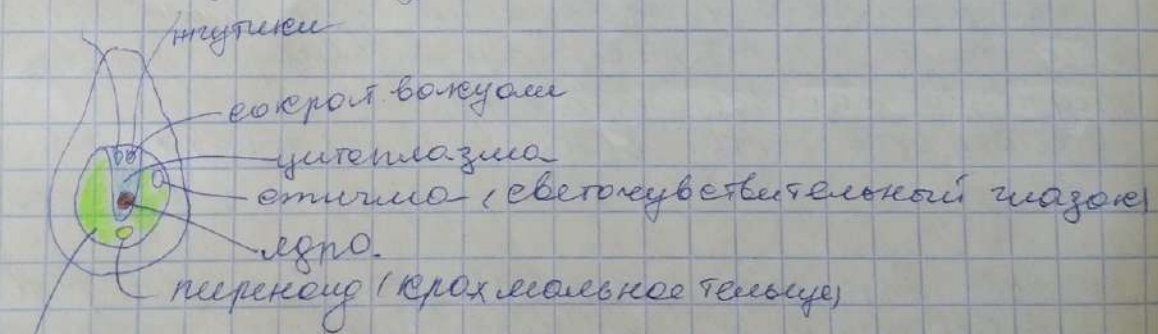 жгутики
сократ. вакуоли
цитоплазма
стигма (светочувствительный глазок)
ядро.
пиреноид (крахмальное тельце)